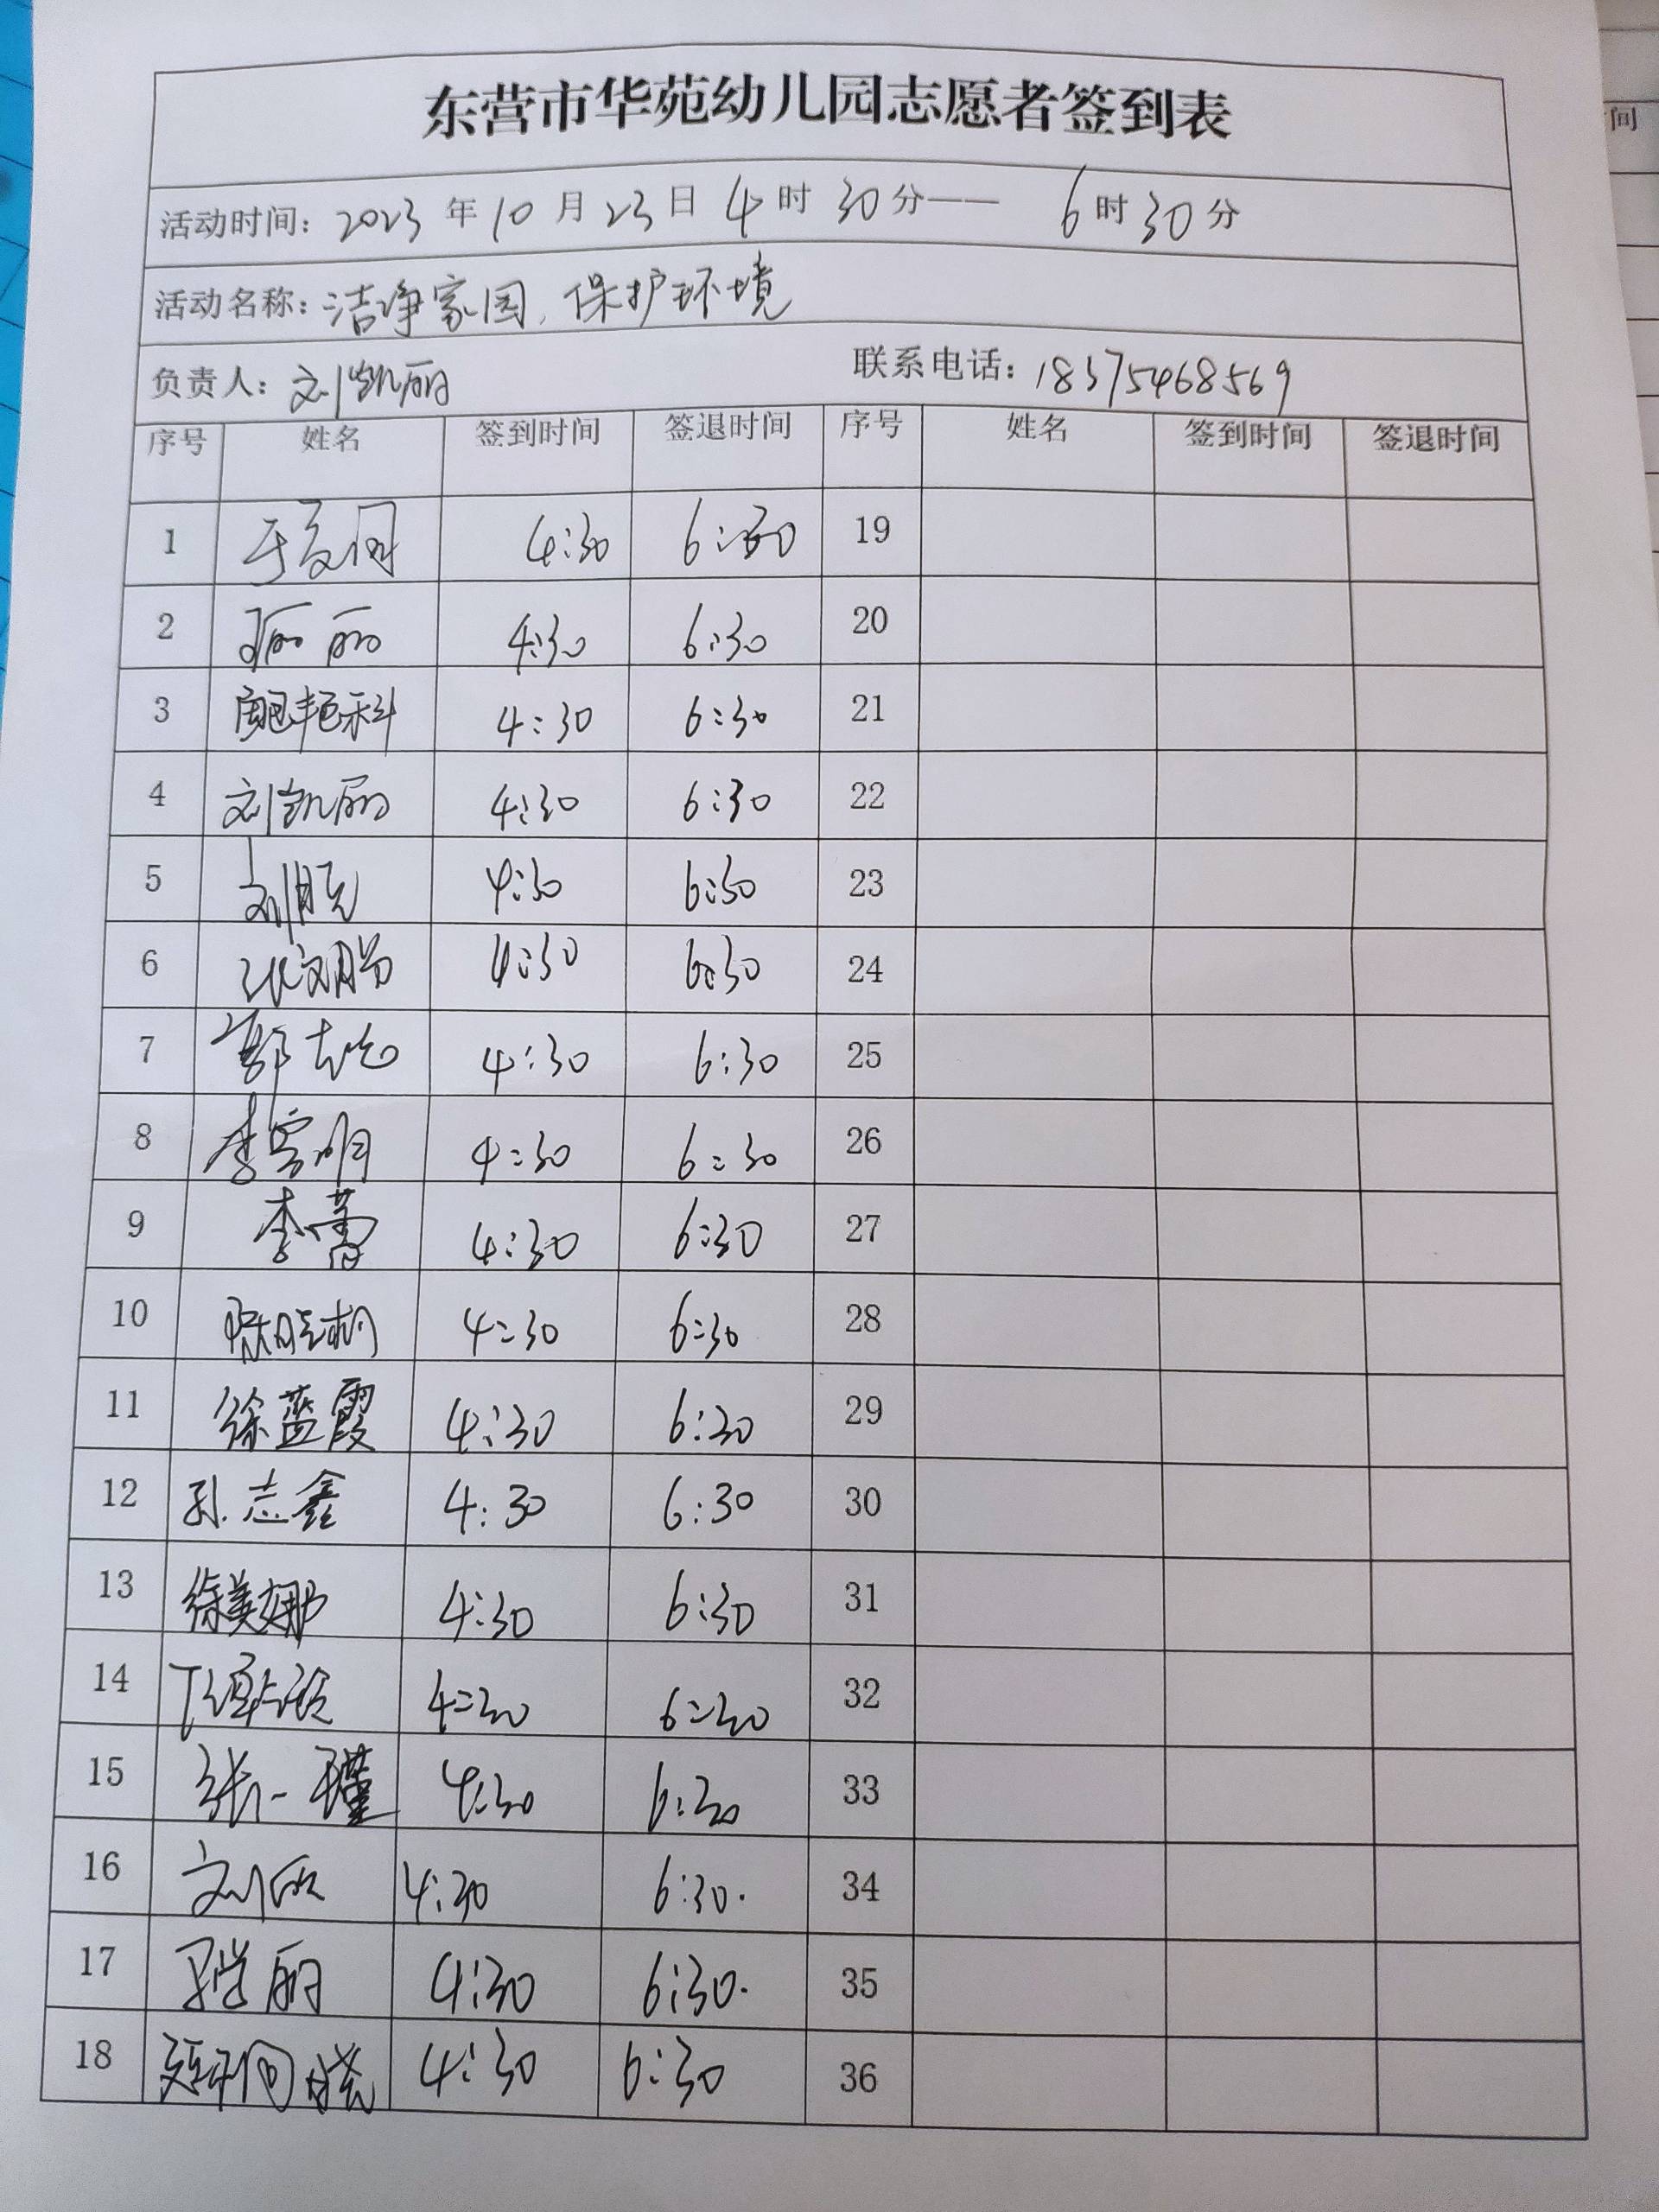 东营市华苑幼儿园志愿者签到表
活动时间：2023年10月23日4时30分——6时30分
活动名称：洁净家园，保护环境
负责人：刘凯丽 联系电话：18375468569
序号 姓名 签到时间 签退时间 序号 姓名 签到时间 签退时间
1 4:30 6:30 19
2 丽 4:30 6:30 20
3 4:30 6:30 21
4 刘凯丽 4:30 6:30 22
5 刘晓 4:30 6:30 23
6 张文 4:30 6:30 24
7 郭 4:30 6:30 25
8 李 明 4:30 6:30 26
9 李蕾 4:30 6:30 27
10 陈晓 4:30 6:30 28
11 徐蓝霞 4:30 6:30 29
12 孙志鑫 4:30 6:30 30
13 徐美娜 4:30 6:30 31
14 4:30 6:30 32
15 张一瑾 4:30 6:30 33
16 刘欣 4:30 6:30. 34
17 丽 4:30 6:30. 35
18 4:30 6:30 36
间